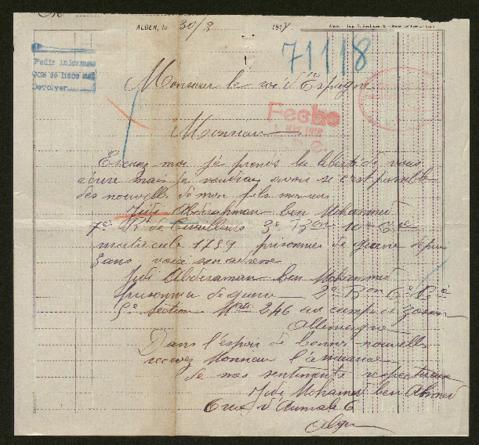 ALGER, le 30/3 191
71118
Pedir informes
Fecha
Monsieur le roi d'Espagne
Monsieur
Excusez moi je prends la liberté de vous
écrire mais je voudrais avoir si c'est possible
des nouvelles de mon fils
Abdérahman ben Mohammed
7e Rt de Tirailleurs 3e Bon 10e Cie
matricule 1739 prisonnier de guerre depuis
3 ans voici son adresse
Abderaman ben Mohammed
prisonnier de guerre 2e Bon 6e Cie
5e section Mle 246 au camp de
Allemagne
Dans l'espoir de bonnes nouvelles
recevez Monsieur l'assurance
de mes sentiments respectueux
Mohamed ben Ahmed
6 rue d'Aumale 6
Alger